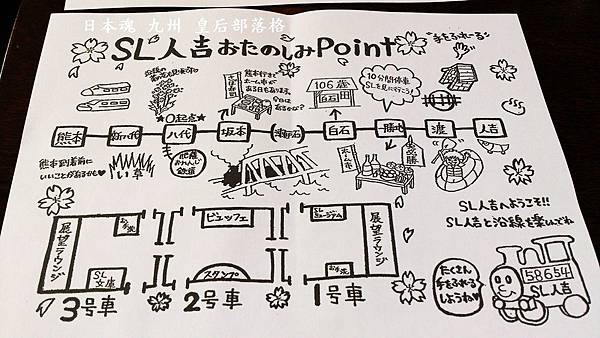 日本魂 九州 皇后部落格
SL人吉おたのしみPoint
手をふれ〜る
106歳
白石
10分間停車
SLを見に行こう!
0起点
熊本 新八代 八代 坂本 (瀬戸石) 白石 勝地 渡 人吉
熊本到着前に
いいことがあるかも
い草
肥薩
おれんじ
鉄道
ホーム市
必勝
SL人吉へようこそ!!
SL人吉と沿線を楽しんでね
展望ラウンジ
お手洗
SL文庫
3号車
ビュッフェ
スタンプ
2号車
SLミュージアム
お手洗
展望ラウンジ
1号車
たくさん
手をふれる
しようね
58654
SL人吉